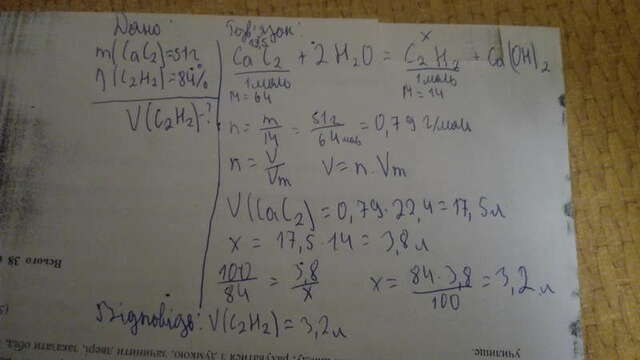 Дано:
m(CaC2)=51г
η(C2H2)=84%
V(C2H2)-?
Розв'язок:
x
CaC2 + 2H2O = C2H2 + Ca(OH)2
1моль 1моль
M=64 M=14
n = m/14 = 51г/64моль = 0,79 г/моль
n = V/Vm V = n·Vm
V(CaC2) = 0,79·22,4 = 17,5л
x = 17,5·14 = 3,8л
100/84 = 3,8/x x = 84·3,8/100 = 3,2л
Відповідь: V(C2H2) = 3,2л
Всього 38
училище
двері, зачинити обла